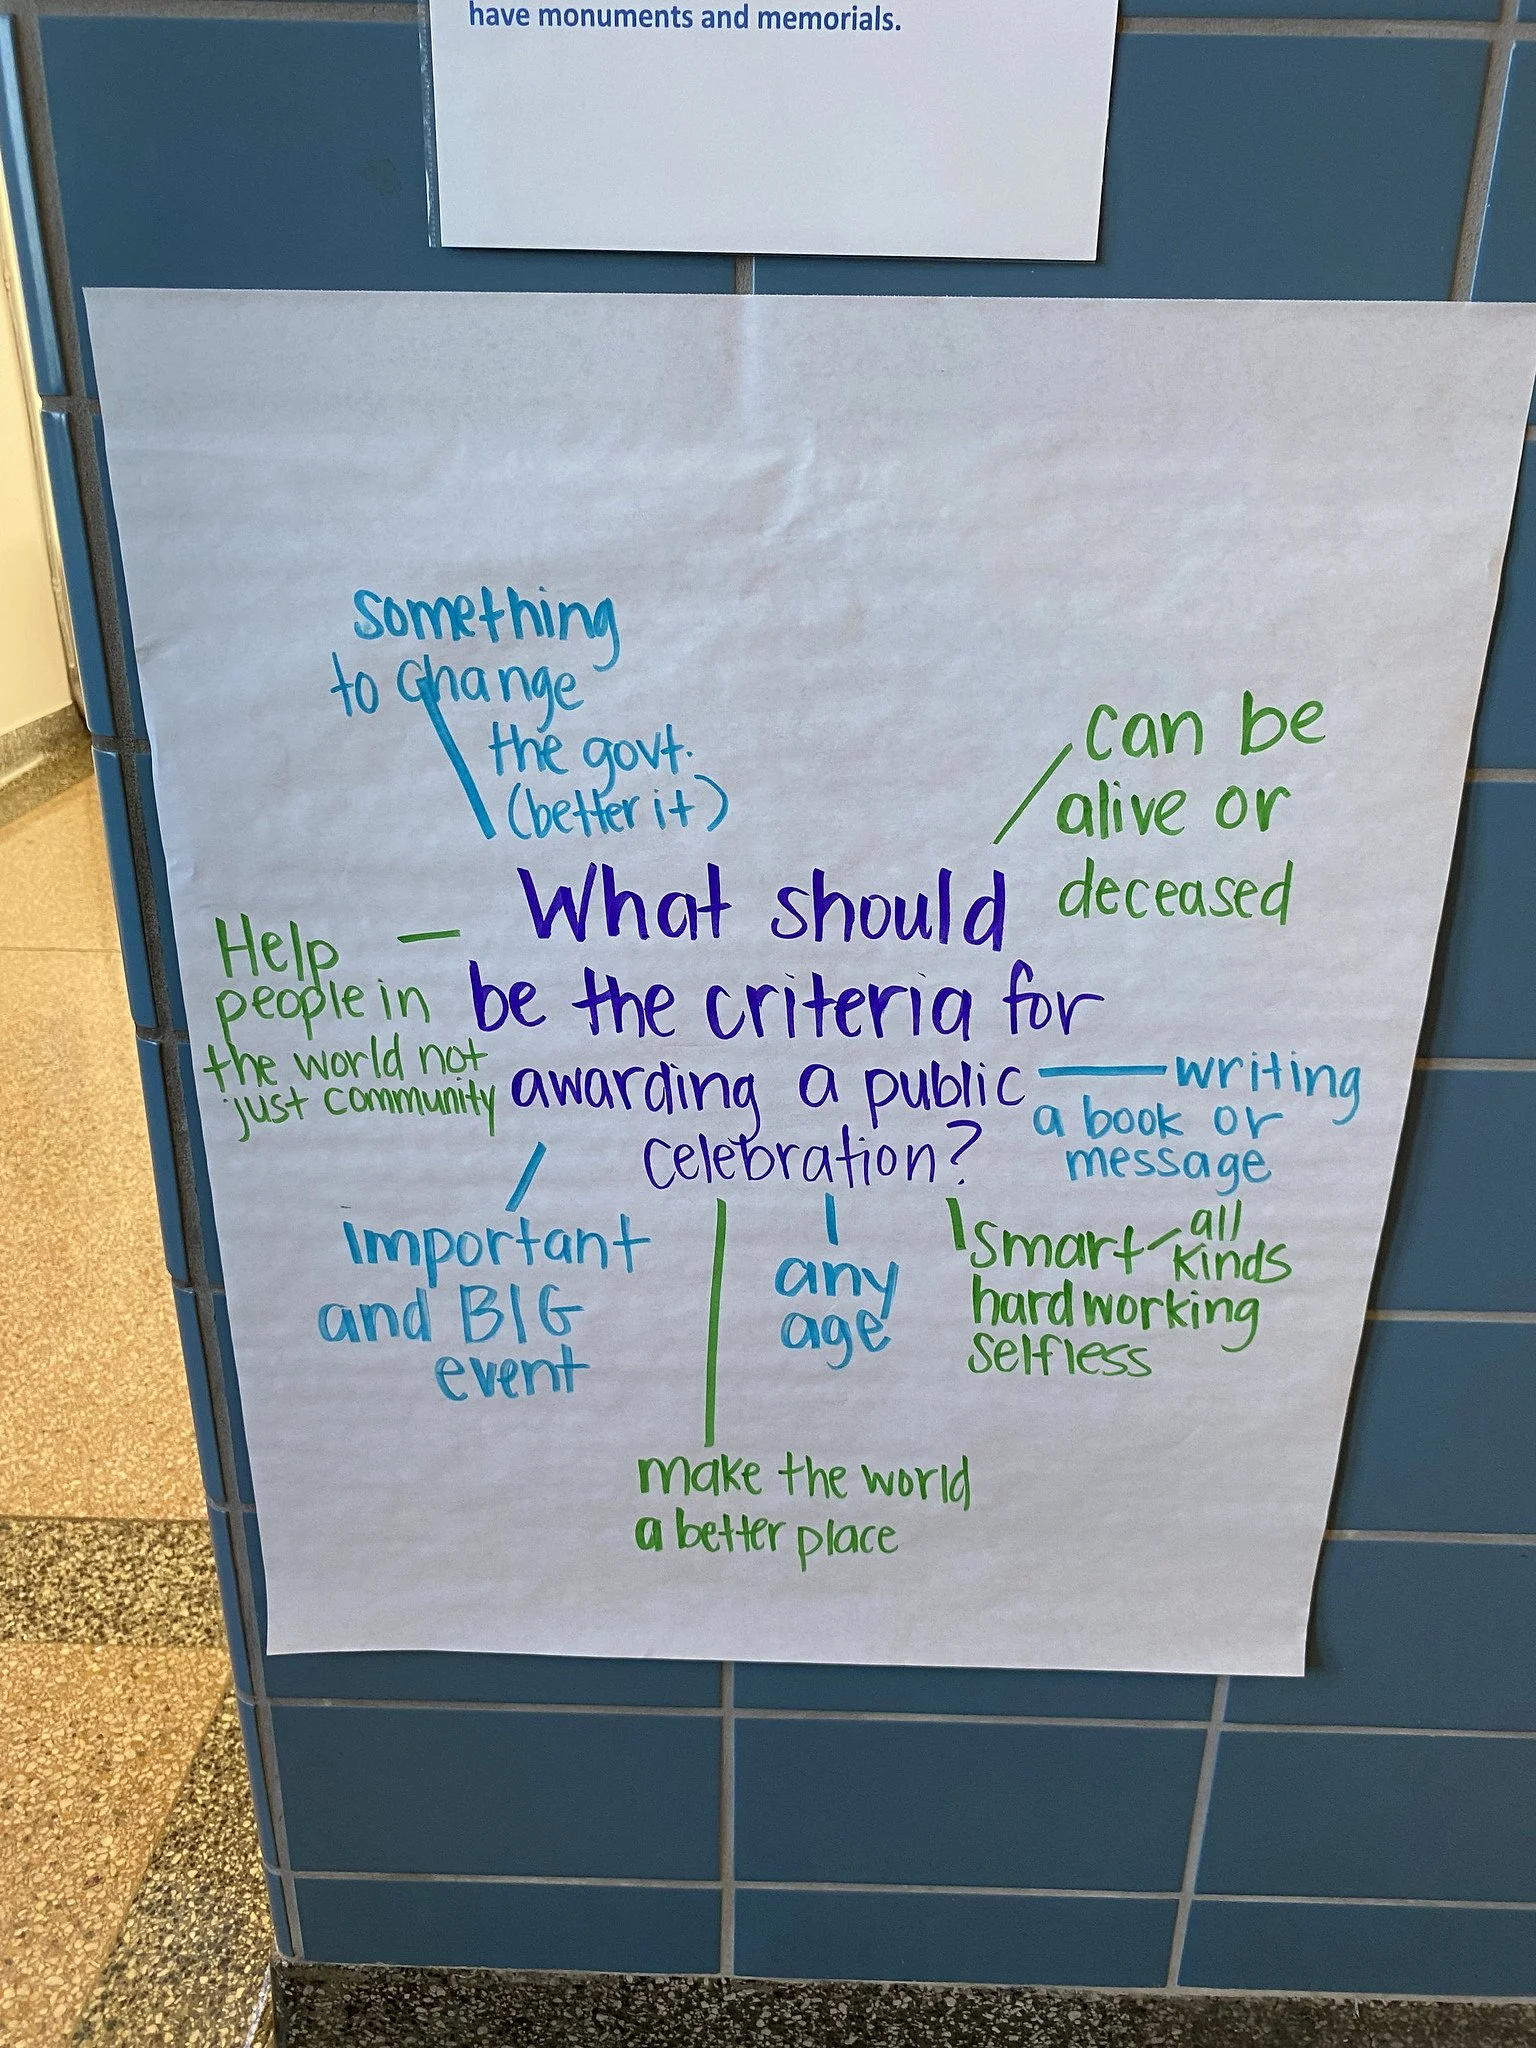 have monuments and memorials.
something
to change
the govt.
(better it)
can be
alive or
deceased
What should
be the criteria for
awarding a public
celebration?
Help
people in
the world not
just community
writing
a book or
message
important
and BIG
event
any
age
smart all
kinds
hardworking
selfless
make the world
a better place